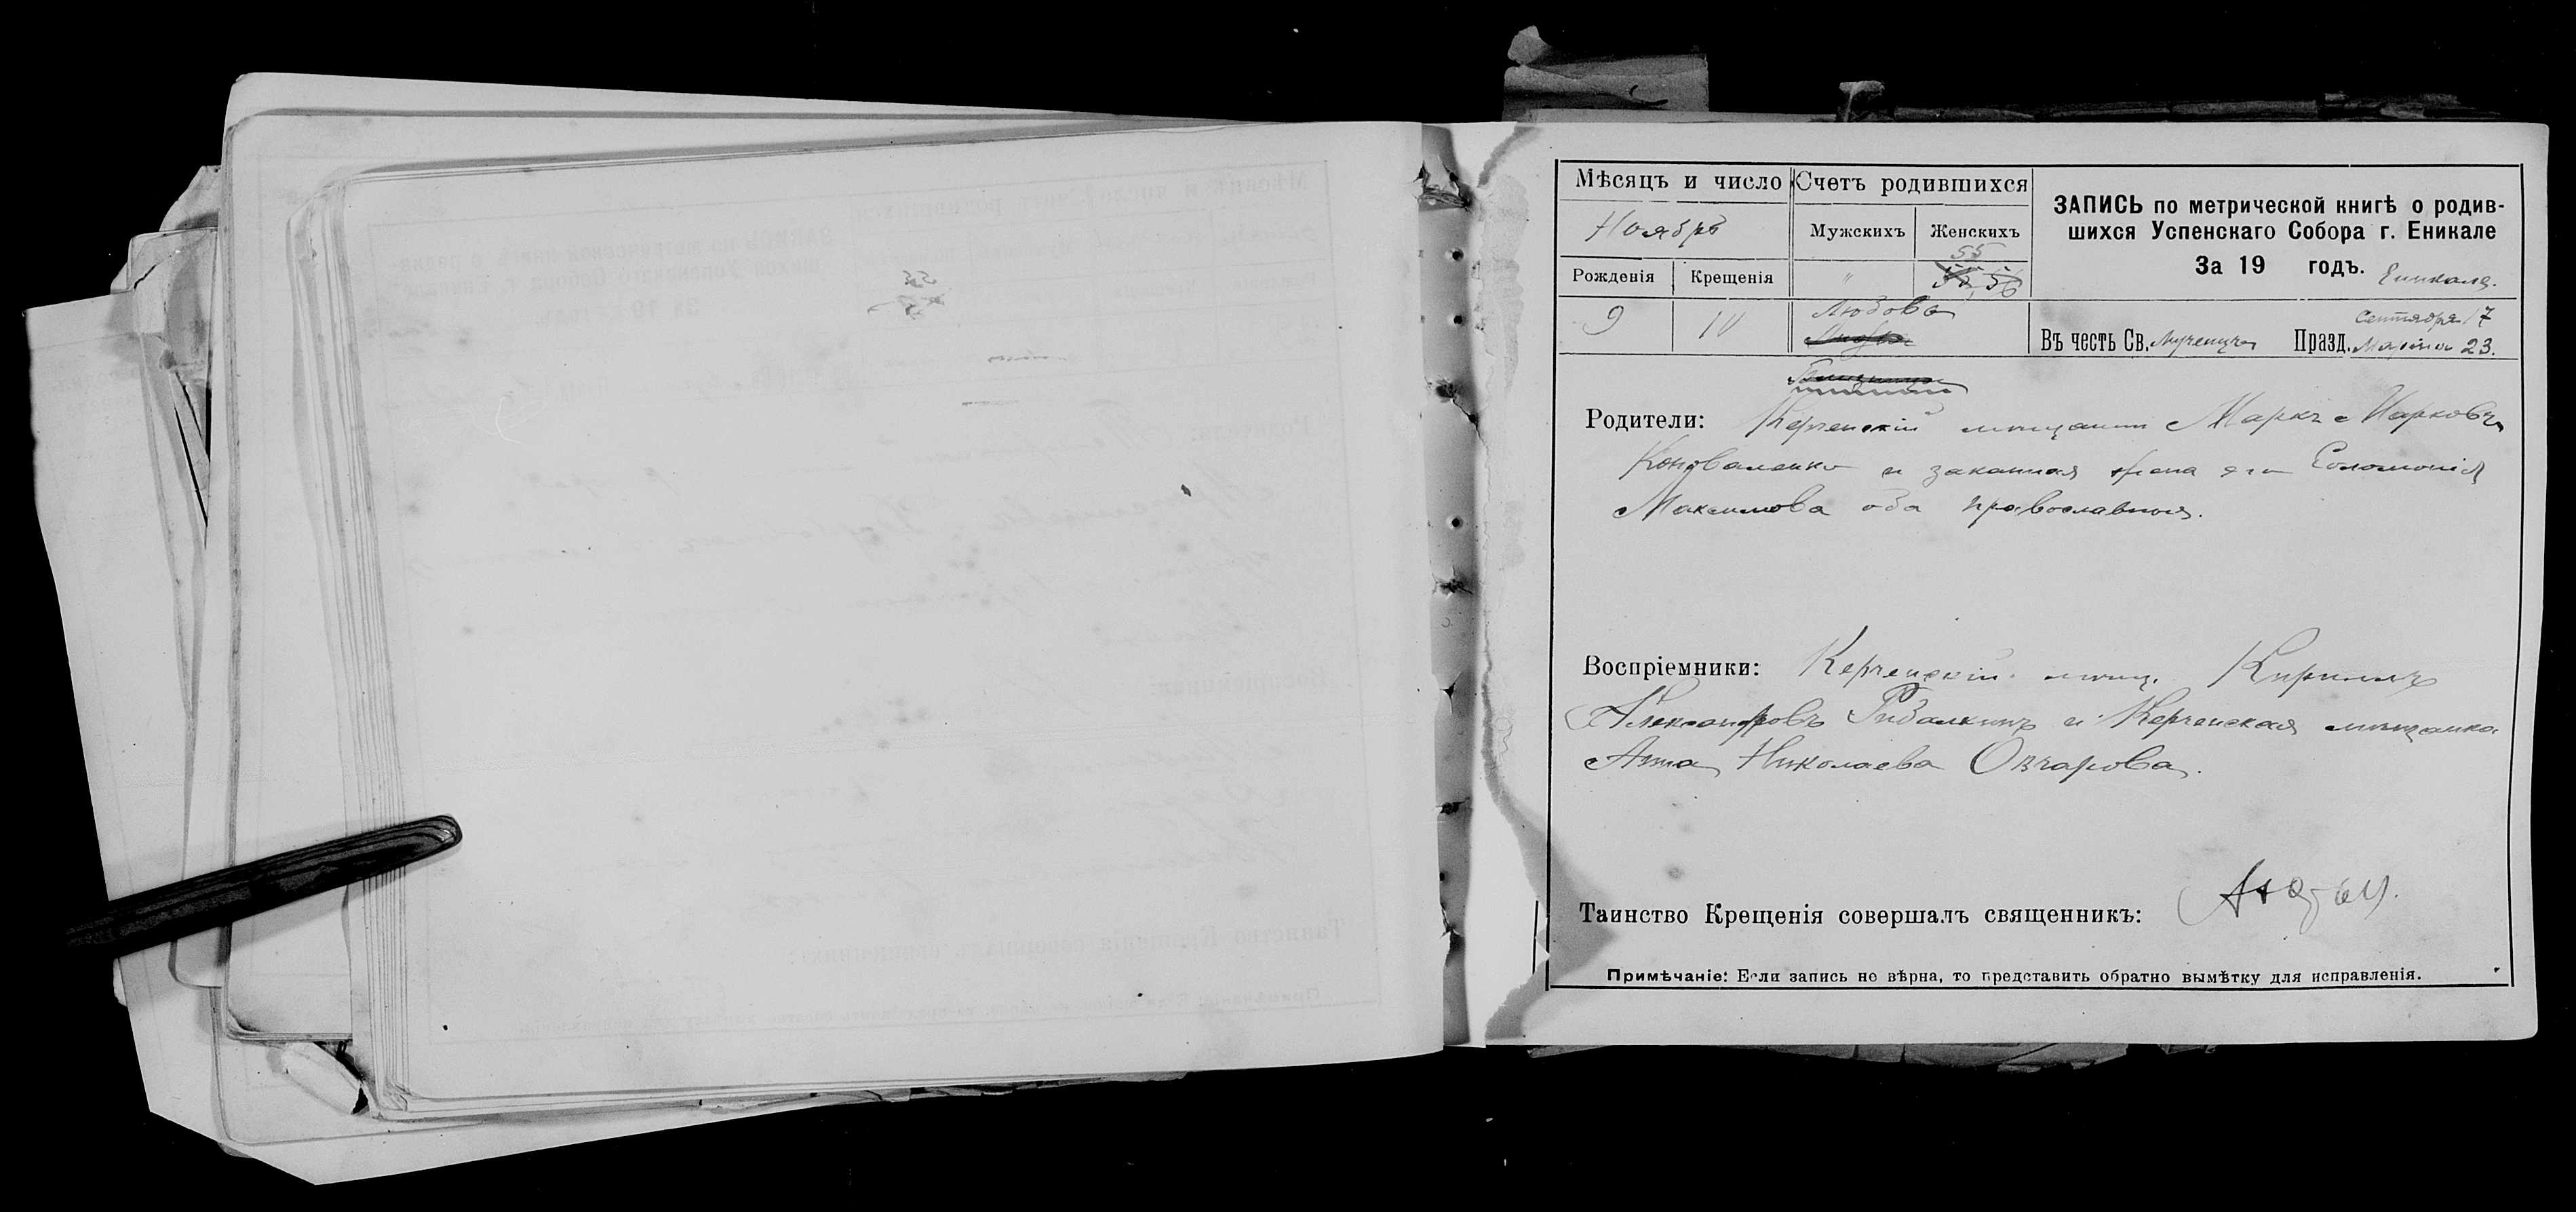 Мѣсяцъ и число
Ноябрь
Рожденія
Крещенія
9
10
Счетъ родившихся
Мужскихъ
Женскихъ
"
55
Любовь
ЗАПИСЬ по метрической книгѣ о родив-
шихся Успенскаго Собора г. Еникале
За 19 годъ.
Еникале.
Въ честь Св. Мученицы
Празд. Сентября 17
23.
Родители: Керченскій мѣщанинъ Маркъ Марковъ
Коноваленко и законная жена его Соломонія
Максимова оба православныя.
Воспріемники: Керченскій мѣщ. Кириллъ
Александровъ Рибалкинъ и Керченская мѣщанка
Анна Николаева Овчарова.
Таинство Крещенія совершалъ священникъ:
Примѣчаніе: Если запись не вѣрна, то представить обратно вымѣтку для исправленія.